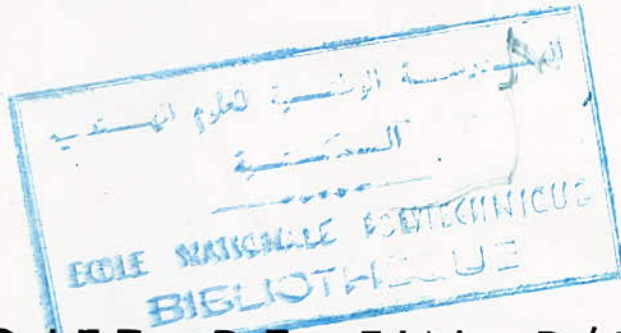 المدرسة الوطنية للعلوم الهندسية
المكتبة
ECOLE NATIONALE POLYTECHNIQUE
BIBLIOTHEQUE
DE FIN